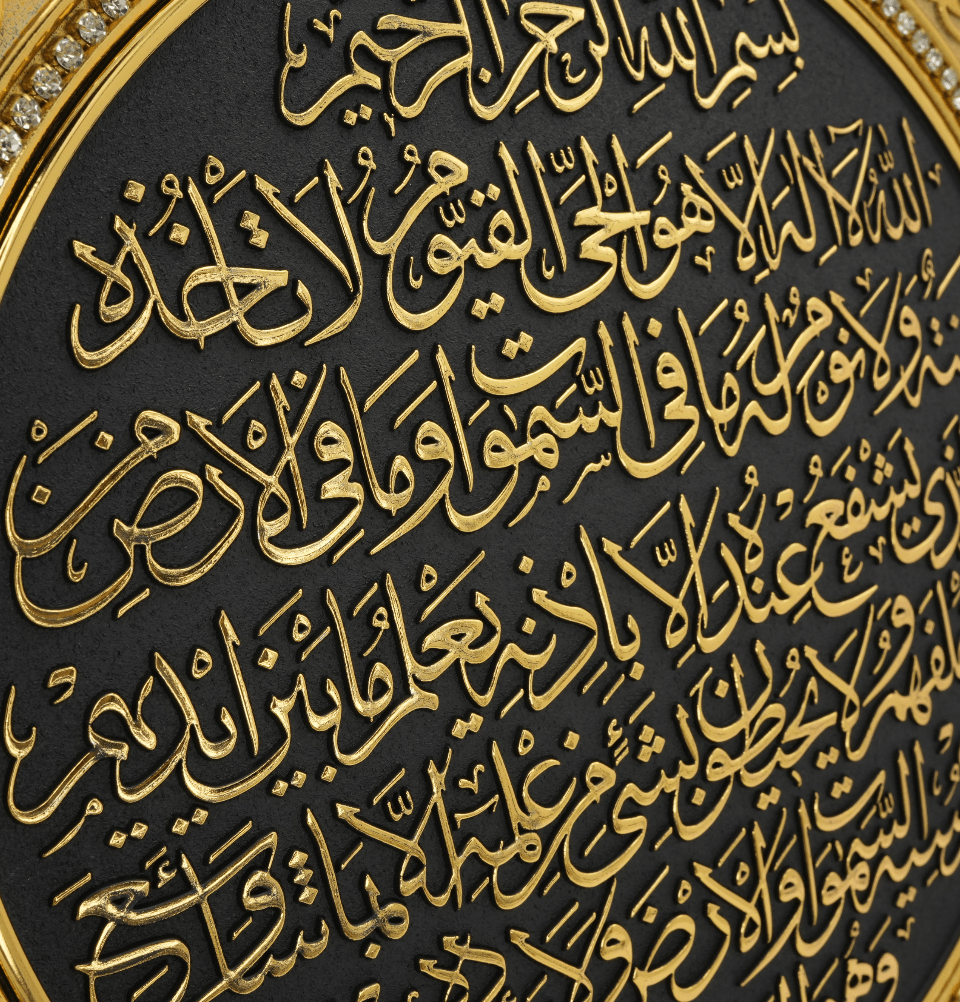 بسم الله الرحمن الرحيم
الله لا اله الا هو الحي القيوم لا تاخذه
سنة ولا نوم له ما في السموات وما في الارض من
ذي يشفع عنده الا باذنه يعلم ما بين ايديهم
خلفهم ولا يحيطون بشيء من علمه الا بما شاء وسع
سيه السموات والارض ولا
وهو